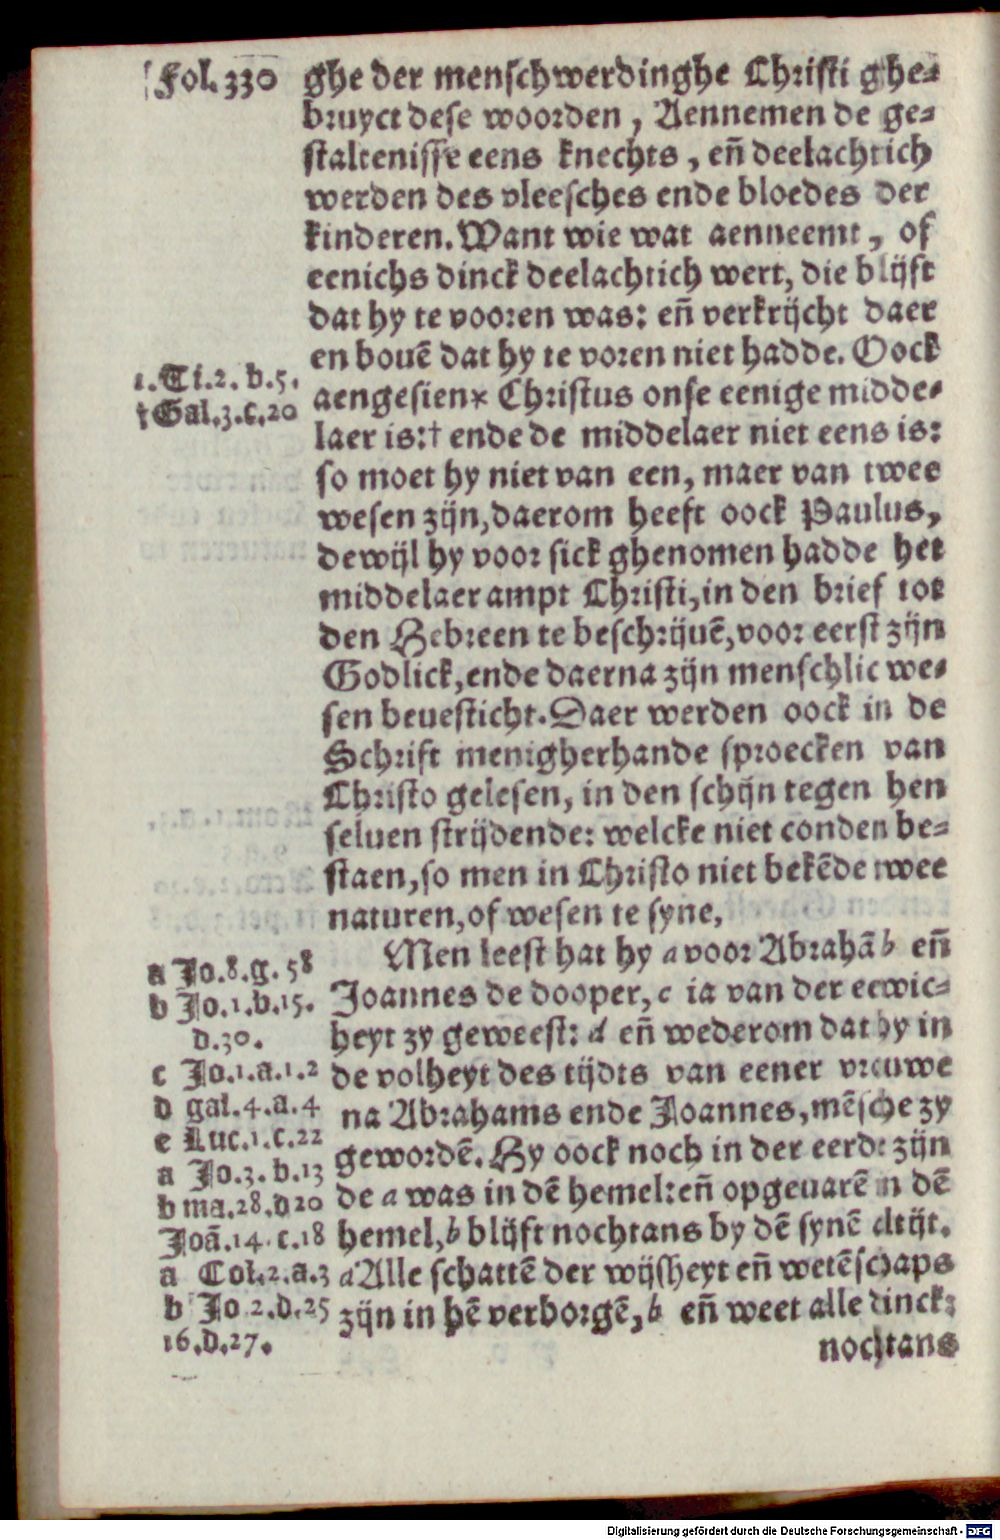 Fol. 330
ghe der menschwerdinghe Christi ghe-
bruyct dese woorden, Aennemen de ge-
staltenisse eens knechts, en̄ deelachtich
werden des vleesches ende bloedes der
kinderen. Want wie wat aenneemt, of
eenichs dinck deelachtich wert, die blijft
dat hy te vooren was: en̄ verkrijcht daer
en bouē dat hy te voren niet hadde. Oock
1. Ti. 2. b. 5.
aengesien* Christus onse eenige midde-
† Gal. 3. c. 20
laer is:† ende de middelaer niet eens is:
so moet hy niet van een, maer van twee
wesen zijn, daerom heeft oock Paulus,
dewijl hy voor sick ghenomen hadde het
middelaer ampt Christi, in den brief tot
den Hebreen te beschrijuē, voor eerst zijn
Godlick, ende daerna zijn menschlic we-
sen beuesticht. Daer werden oock in de
Schrift menigherhande sproecken van
Christo gelesen, in den schijn tegen hen
seluen strijdende: welcke niet conden be-
staen, so men in Christo niet bekēde twee
naturen, of wesen te syne,
Men leest hat hy a voor Abrahā b en̄
a Jo. 8. g. 58
Joannes de dooper, c ia van der eewic-
b Jo. 1. b. 15.
d. 30.
heyt zy geweest: d en̄ wederom dat hy in
c Jo. 1. a. 1. 2
de volheyt des tijdts van eener vrouwe
d gal. 4. a. 4
na Abrahams ende Joannes, mēsche zy
e Luc. 1. c. 22
gewordē. Hy oock noch in der eerde zijn
a Jo. 3. b. 13
de a was in dē hemel: en̄ opgeuarē in dē
b ma. 28. d 20
Joā. 14. c. 18
hemel, b blijft nochtans by dē synē altijt.
a Col. 2. a. 3
a Alle schattē der wijsheyt en̄ wetēschaps
b Jo 2. d. 25
16. d. 27.
zijn in hē verborgē, b en̄ weet alle dinck:
nochtans
Digitalisierung gefördert durch die Deutsche Forschungsgemeinschaft - DFG